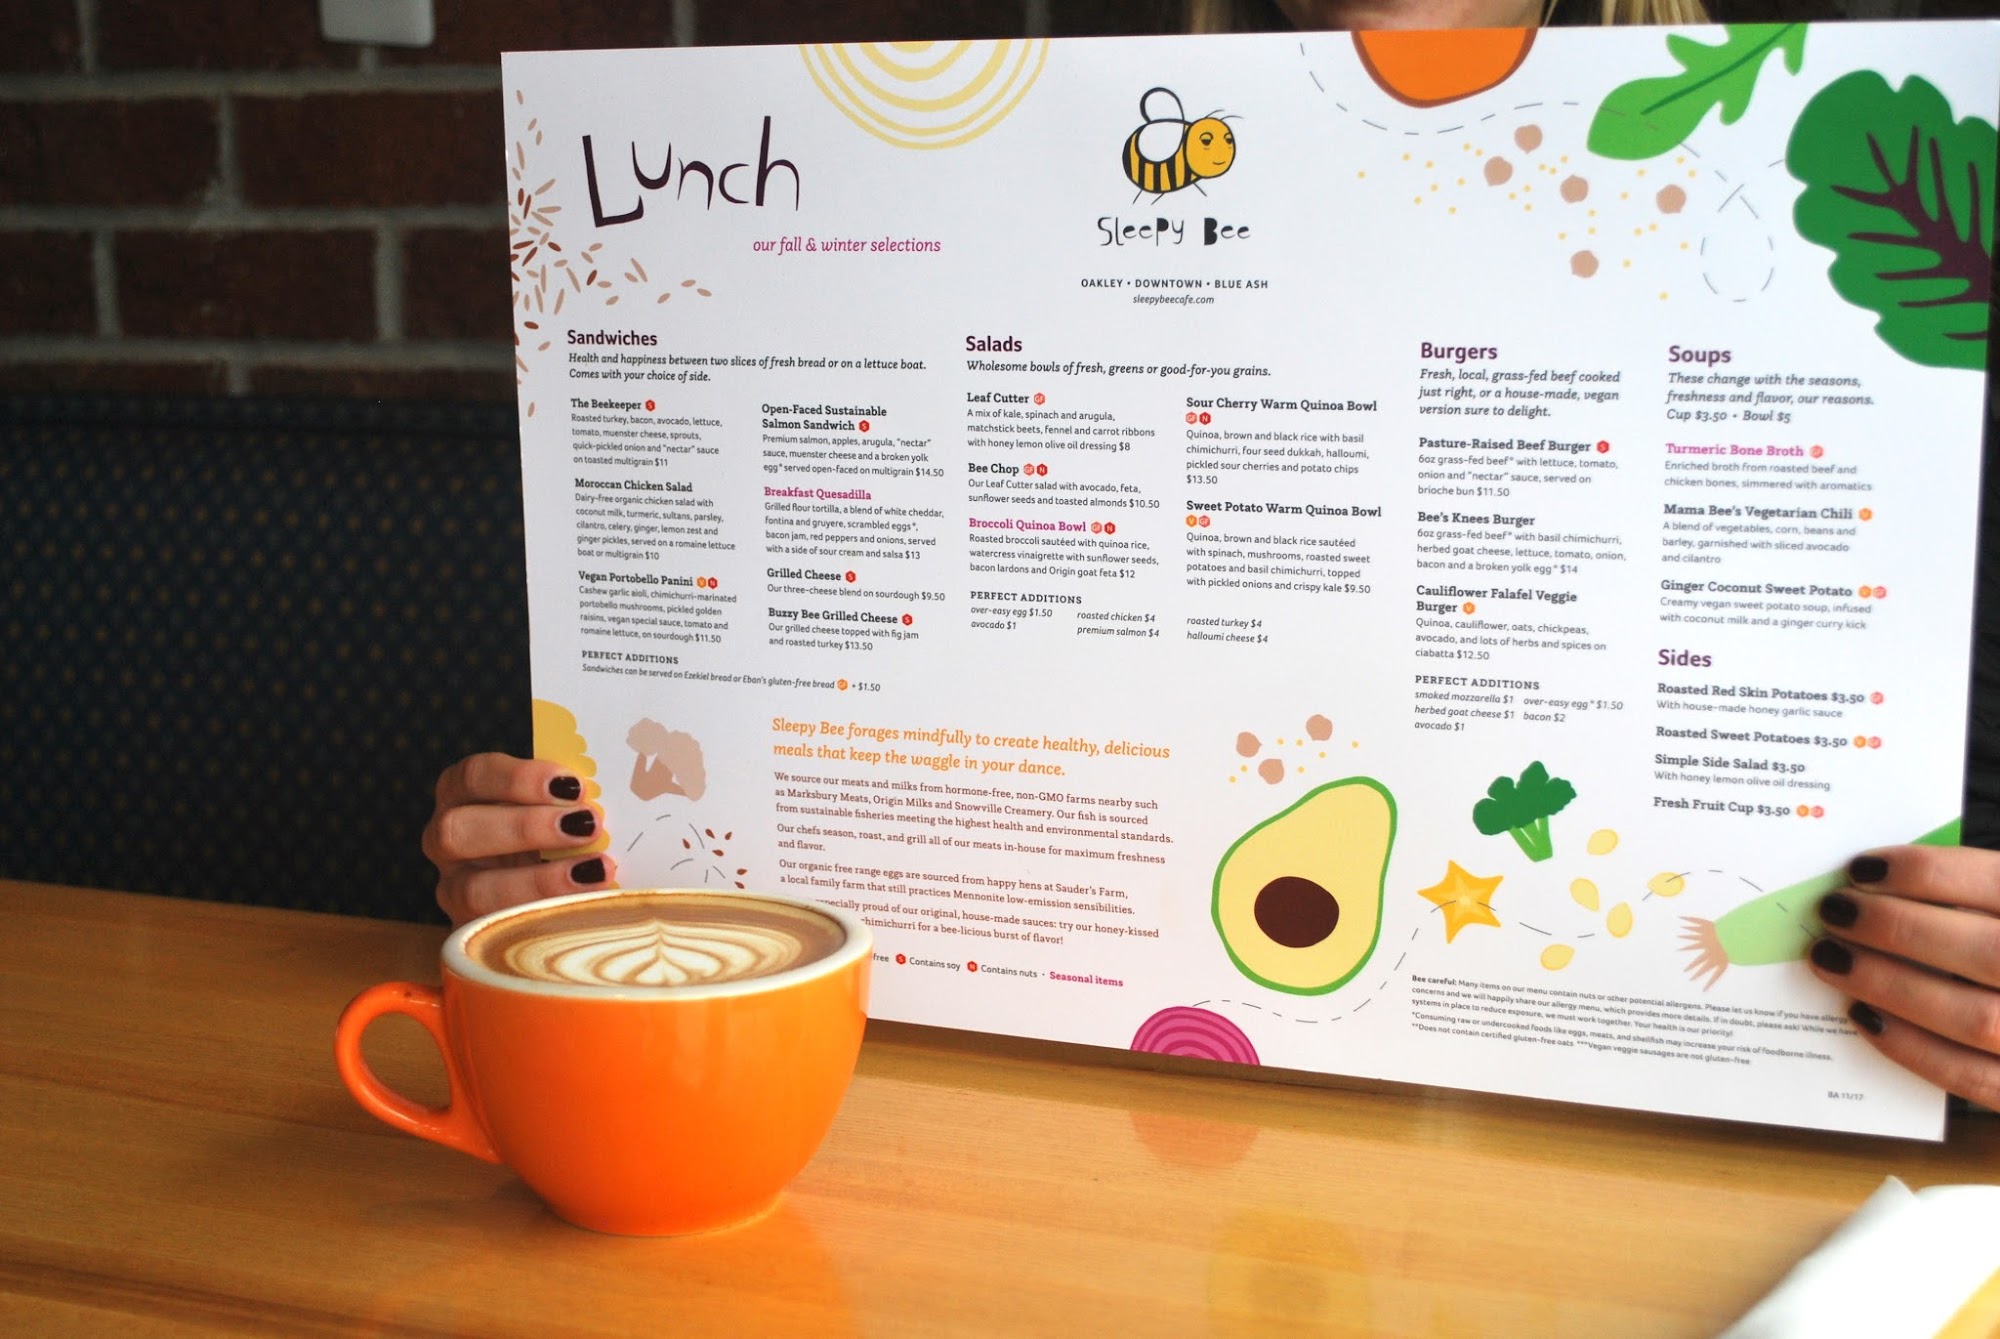 Lunch
our fall & winter selections
Sleepy Bee
OAKLEY • DOWNTOWN • BLUE ASH
sleepybeecafe.com
Sandwiches
Health and happiness between two slices of fresh bread or on a lettuce boat.
Comes with your choice of side.
The Beekeeper S
Roasted turkey, bacon, avocado, lettuce,
tomato, muenster cheese, sprouts,
quick-pickled onion and "nectar" sauce
on toasted multigrain $11
Moroccan Chicken Salad
Dairy-free organic chicken salad with
coconut milk, turmeric, sultans, parsley,
cilantro, celery, ginger, lemon zest and
ginger pickles, served on a romaine lettuce
boat or multigrain $10
Vegan Portobello Panini V N
Cashew garlic aioli, chimichurri-marinated
portobello mushrooms, pickled golden
raisins, vegan special sauce, tomato and
romaine lettuce, on sourdough $11.50
Open-Faced Sustainable
Salmon Sandwich S
Premium salmon, apples, arugula, "nectar"
sauce, muenster cheese and a broken yolk
egg* served open-faced on multigrain $14.50
Breakfast Quesadilla
Grilled flour tortilla, a blend of white cheddar,
fontina and gruyere, scrambled eggs*,
bacon jam, red peppers and onions, served
with a side of sour cream and salsa $13
Grilled Cheese S
Our three-cheese blend on sourdough $9.50
Buzzy Bee Grilled Cheese S
Our grilled cheese topped with fig jam
and roasted turkey $13.50
PERFECT ADDITIONS
Sandwiches can be served on Ezekiel bread or Eban's gluten-free bread GF + $1.50
Salads
Wholesome bowls of fresh, greens or good-for-you grains.
Leaf Cutter GF
A mix of kale, spinach and arugula,
matchstick beets, fennel and carrot ribbons
with honey lemon olive oil dressing $8
Bee Chop GF N
Our Leaf Cutter salad with avocado, feta,
sunflower seeds and toasted almonds $10.50
Broccoli Quinoa Bowl GF N
Roasted broccoli sautéed with quinoa rice,
watercress vinaigrette with sunflower seeds,
bacon lardons and Origin goat feta $12
Sour Cherry Warm Quinoa Bowl
GF N
Quinoa, brown and black rice with basil
chimichurri, four seed dukkah, halloumi,
pickled sour cherries and potato chips
$13.50
Sweet Potato Warm Quinoa Bowl
V GF
Quinoa, brown and black rice sautéed
with spinach, mushrooms, roasted sweet
potatoes and basil chimichurri, topped
with pickled onions and crispy kale $9.50
PERFECT ADDITIONS
over-easy egg $1.50 roasted chicken $4 roasted turkey $4
avocado $1 premium salmon $4 halloumi cheese $4
Burgers
Fresh, local, grass-fed beef cooked
just right, or a house-made, vegan
version sure to delight.
Pasture-Raised Beef Burger S
6oz grass-fed beef* with lettuce, tomato,
onion and "nectar" sauce, served on
brioche bun $11.50
Bee's Knees Burger
6oz grass-fed beef* with basil chimichurri,
herbed goat cheese, lettuce, tomato, onion,
bacon and a broken yolk egg* $14
Cauliflower Falafel Veggie
Burger V
Quinoa, cauliflower, oats, chickpeas,
avocado, and lots of herbs and spices on
ciabatta $12.50
PERFECT ADDITIONS
smoked mozzarella $1 over-easy egg* $1.50
herbed goat cheese $1 bacon $2
avocado $1
Soups
These change with the seasons,
freshness and flavor, our reasons.
Cup $3.50 • Bowl $5
Turmeric Bone Broth GF
Enriched broth from roasted beef and
chicken bones, simmered with aromatics
Mama Bee's Vegetarian Chili V
A blend of vegetables, corn, beans and
barley, garnished with sliced avocado
and cilantro
Ginger Coconut Sweet Potato V GF
Creamy vegan sweet potato soup, infused
with coconut milk and a ginger curry kick
Sides
Roasted Red Skin Potatoes $3.50 GF
With house-made honey garlic sauce
Roasted Sweet Potatoes $3.50 V GF
Simple Side Salad $3.50
With honey lemon olive oil dressing
Fresh Fruit Cup $3.50 V GF
Sleepy Bee forages mindfully to create healthy, delicious
meals that keep the waggle in your dance.
We source our meats and milks from hormone-free, non-GMO farms nearby such
as Marksbury Meats, Origin Milks and Snowville Creamery. Our fish is sourced
from sustainable fisheries meeting the highest health and environmental standards.
Our chefs season, roast, and grill all of our meats in-house for maximum freshness
and flavor.
Our organic free range eggs are sourced from happy hens at Sauder's Farm,
a local family farm that still practices Mennonite low-emission sensibilities.
proud of our original, house-made sauces: try our honey-kissed
chimichurri for a bee-licious burst of flavor!
free S Contains soy N Contains nuts • Seasonal items
Bee careful: Many items on our menu contain nuts or other potential allergens. Please let us know if you have allergy
concerns and we will happily share our allergy menu, which provides more details. If in doubt, please ask! While we have
systems in place to reduce exposure, we must work together. Your health is our priority!
*Consuming raw or undercooked foods like eggs, meats, and shellfish may increase your risk of foodborne illness.
**Does not contain certified gluten-free oats. ***Vegan veggie sausages are not gluten-free
BA 11/17